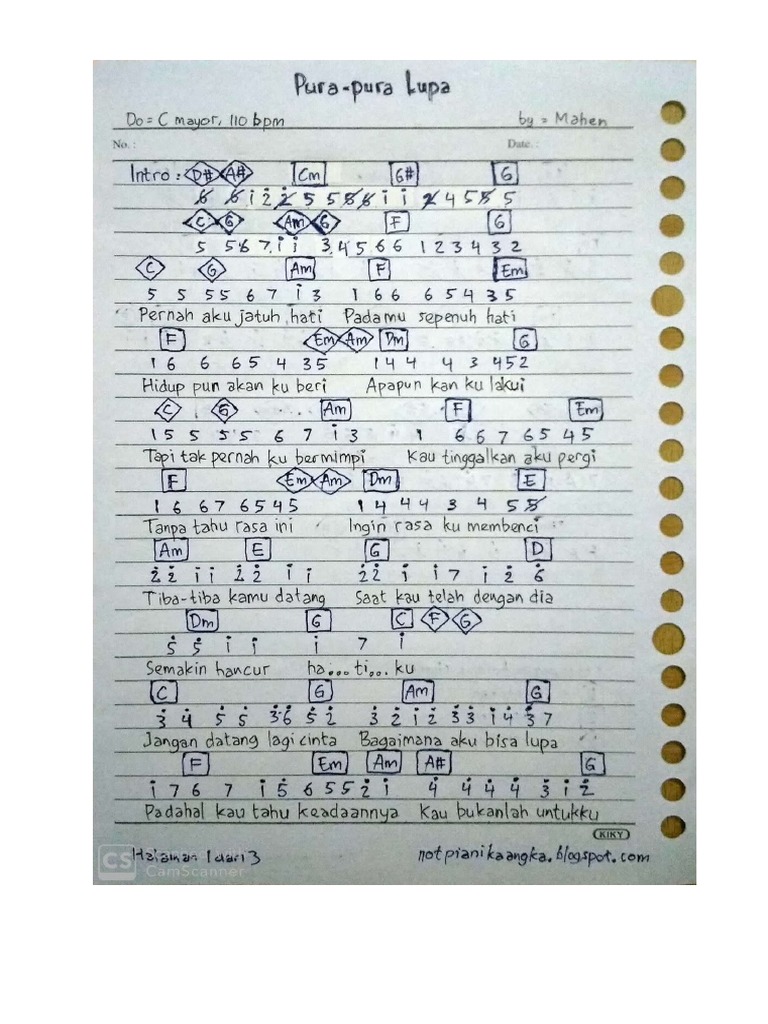 Pura-pura Lupa
Do = C mayor, 110 bpm by = Mahen
No. : Date. :
Intro : D# A# Cm G# G
6̸ 6̸ i̇ 2̇ 2̸̇ 5 5 6̸ 6̸ i̇ i̇ 2̸ 4 5 5̸ 5
C G Am G F G
5 5 6 7 i̇ i̇ 3 4 5 6 6 1 2 3 4 3 2
C G Am F Em
5 5 5 5 6 7 i̇ 3 1 6 6 6 5 4 3 5
Pernah aku jatuh hati Padamu sepenuh hati
F Em Am Dm G
1 6 6 6 5 4 3 5 1 4 4 4 3 4 5 2
Hidup pun akan ku beri Apapun kan ku lakui
C G Am F Em
1 5 5 5 5 6 7 i̇ 3 1 6 6 7 6 5 4 5
Tapi tak pernah ku bermimpi Kau tinggalkan aku pergi
F Em Am Dm E
1 6 6 7 6 5 4 5 1 4 4 4 3 4 5 5̸
Tanpa tahu rasa ini Ingin rasa ku membenci
Am E G D
2̇ 2̇ i̇ i̇ 2̇ 2̇ i̇ i̇ 2̇ 2̇ i̇ i̇ 7 i̇ 2̇ 6̇
Tiba-tiba kamu datang Saat kau telah dengan dia
Dm G C F G
5̇ 5̇ i̇ i̇ i̇ 7 i̇
Semakin hancur ha...ti...ku
C G Am G
3̇ 4̇ 5̇ 5̇ 3̇ 6̇ 5̇ 2̇ 3̇ 2̇ i̇ 2̇ 3̇ 3̇ i̇ 4̇ 3̇ 7
Jangan datang lagi cinta Bagaimana aku bisa lupa
F Em Am A# G
i̇ 7 6 7 i̇ 5̇ 6 5 5 2̇ i̇ 4̇ 4̇ 4̇ 4̇ 3̇ i̇ 2̇
Padahal kau tahu keadaannya Kau bukanlah untukku
KIKY
CS CamScanner
Halaman 1 dari 3 notpianikaangka.blogspot.com